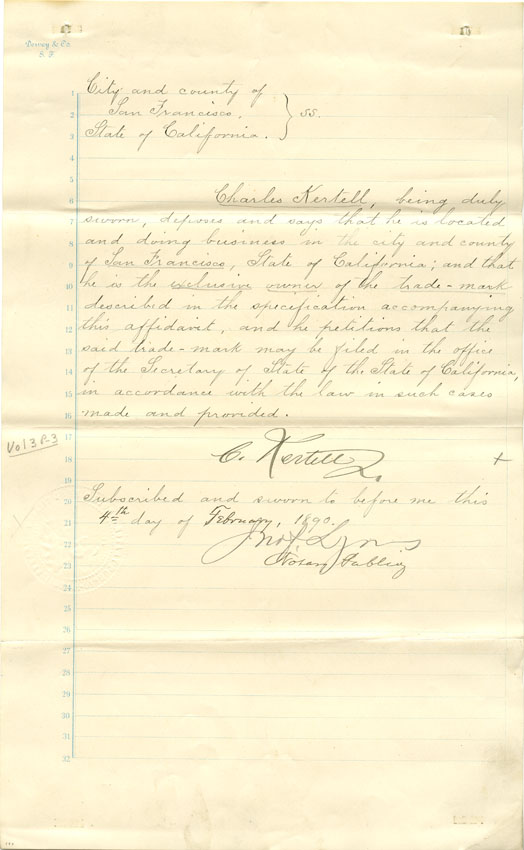 Dewey & Co
S. F.
City and county of
San Francisco.
State of California.
} ss.
Charles Kertell, being duly
sworn, deposes and says that he is located
and doing business in the city and county
of San Francisco, State of California; and that
he is the exclusive owner of the trade-mark
described in the specification accompanying
this affidavit, and he petitions that the
said trade-mark may be filed in the office
of the Secretary of State of the State of California,
in accordance with the law in such cases
made and provided.
Vol 3 P-3
C. Kertell
+
Subscribed and sworn to before me this
4th day of February, 1890.
Notary Public
1
2
3
4
5
6
7
8
9
10
11
12
13
14
15
16
17
18
19
20
21
22
23
24
25
26
27
28
29
30
31
32